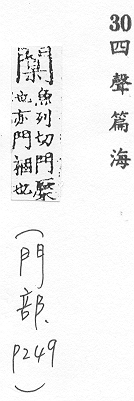 30 四聲篇海
闑魚列切門橜
也亦門梱也
(門部. P249)